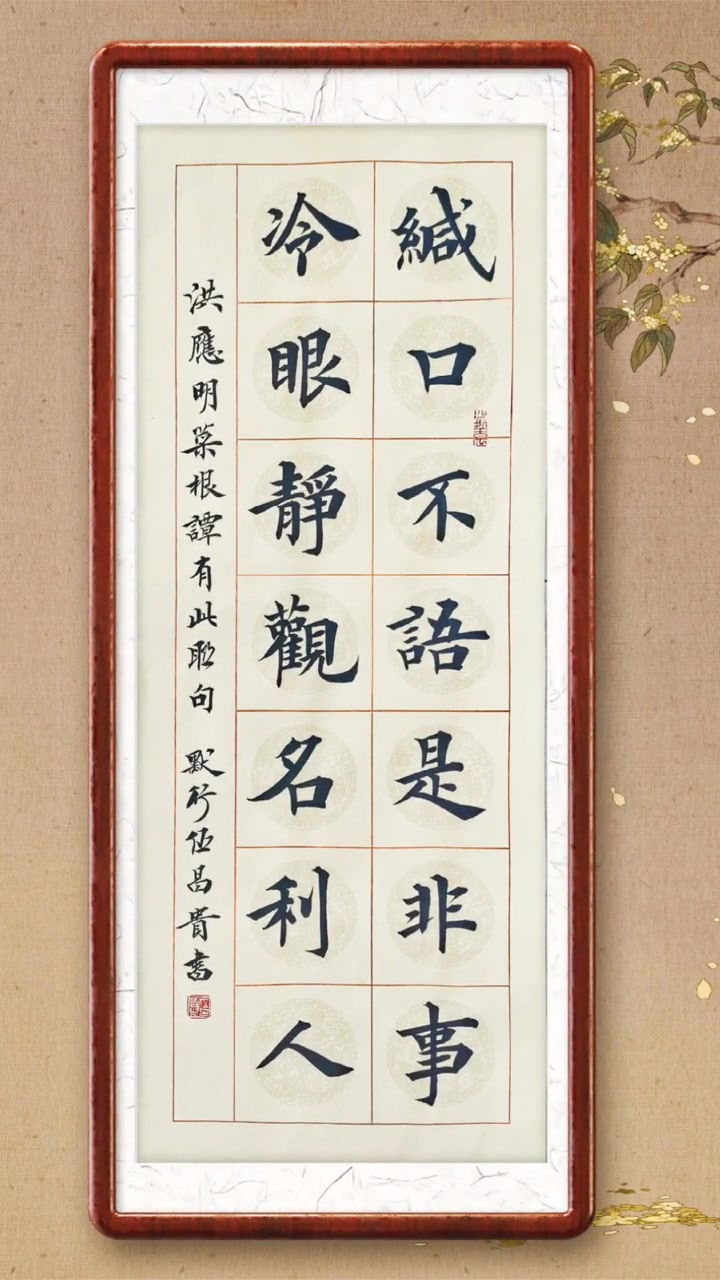 緘口不語是非事
冷眼靜觀名利人
洪應明菜根譚有此聯句 默行伍昌貴書